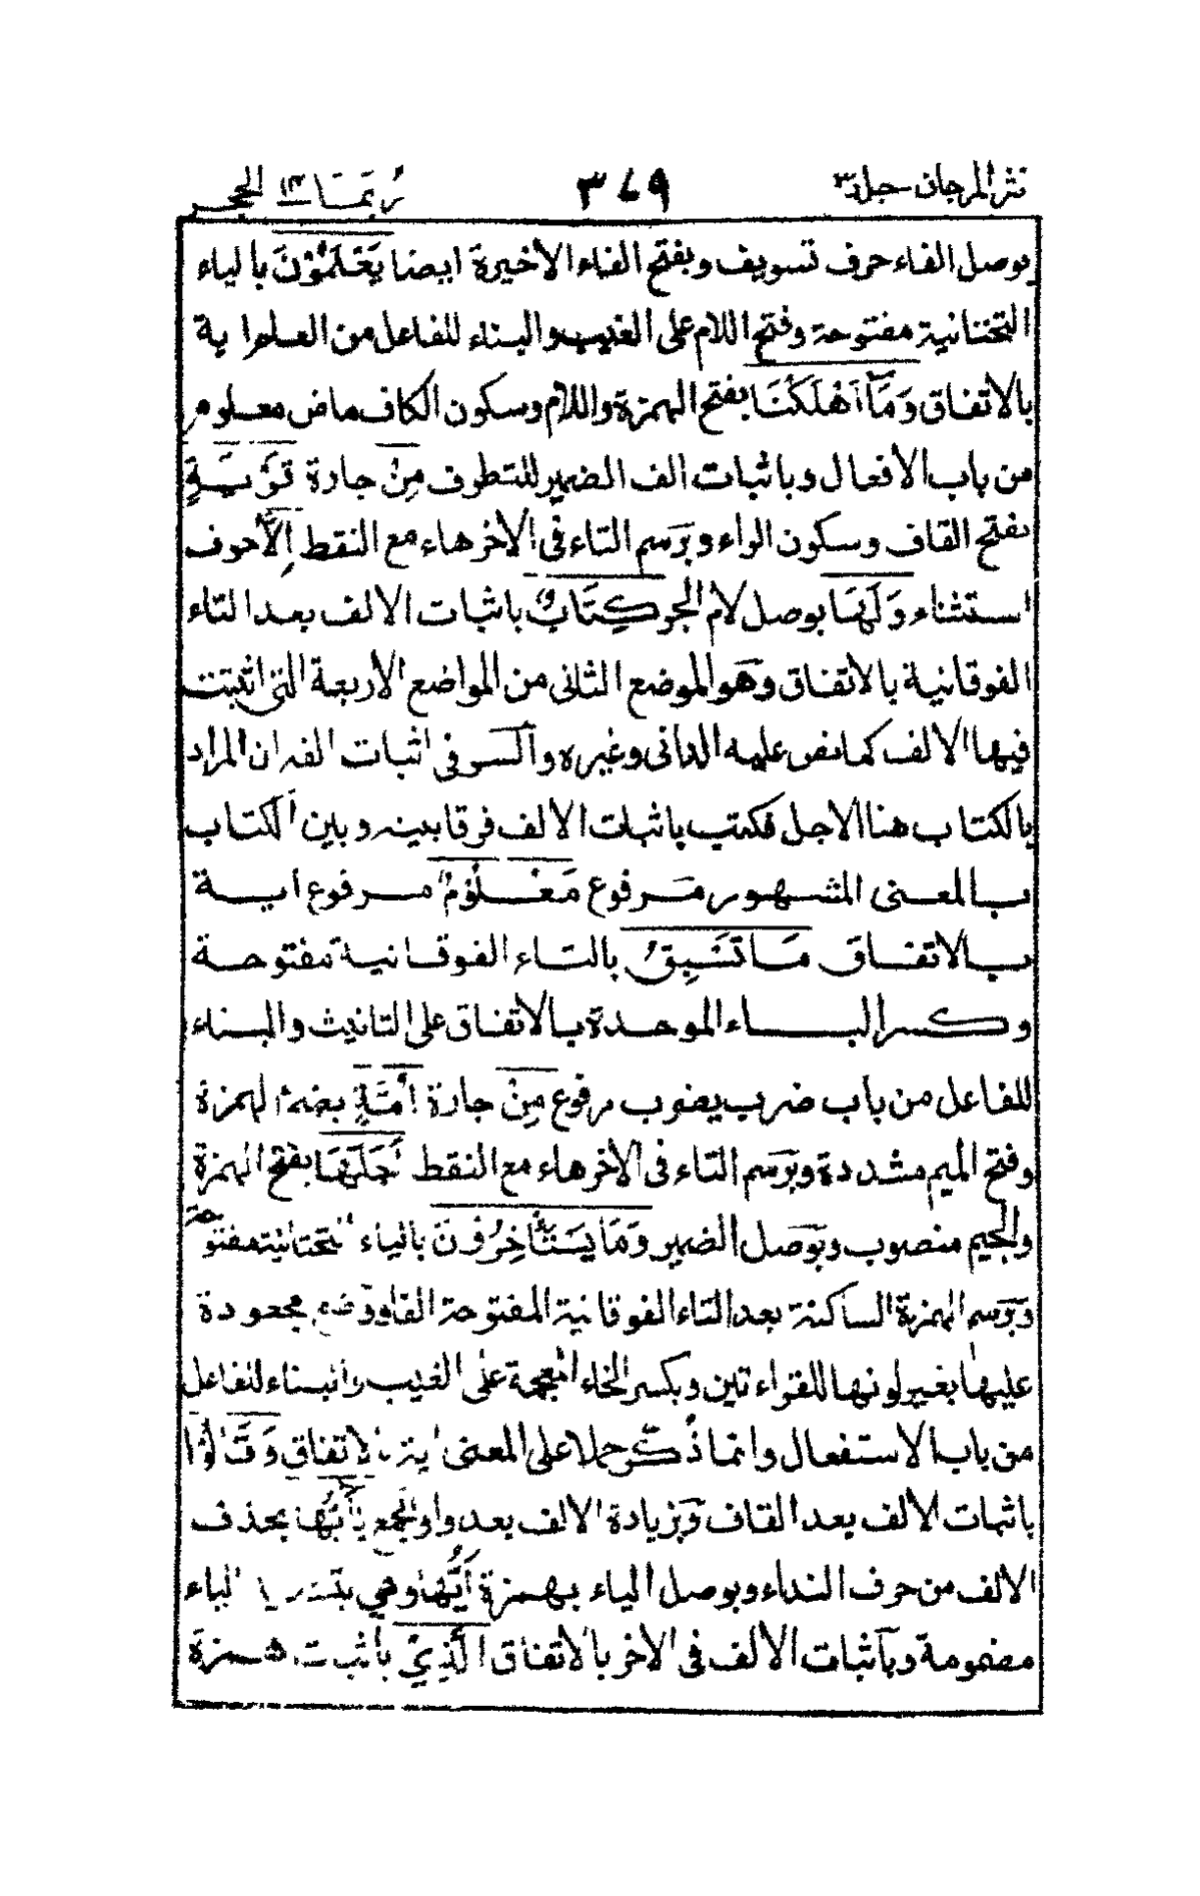 نثر المرجان جلد ٣ ٣٧٩ رُبَمَا ١٤ الحجر
بوصل الفاء حرف تسويف وبفتح الفاء الأخيرة ايضا يَعْلَمُوْنَ بالياء
التحتانية مفتوحة وفتح اللام على الغيب والبناء للفاعل من العلم اية
بالاتفاق وَمَآ اَهْلَكْنَا بفتح الهمزة واللام وسكون الكاف ماض معلوم
من باب الافعال وباثبات الف الضمير للتطرف مِنْ جارة قَرْيَةٍ
بفتح القاف وسكون الراء وبرسم التاء فى الاخر هاء مع النقط اِلَّا حرف
استثناء وَلَهَا بوصل لام الجر كِتَابٌ باثبات الالف بعد التاء
الفوقانية بالاتفاق وهو الموضع الثانى من المواضع الأربعة التى اثبتت
فيها الالف كما نص عليه الدانى وغيره والسر فى اثبات الفه ان المراد
بالكتاب هنا الاجل فكتب باثبات الالف فرقا بينه وبين الكتاب
بالمعنى المشهور مرفوع مَعْلُوْمٌ مرفوع اية
بالاتفاق مَا تَسْبِقُ بالتاء الفوقانية مفتوحة
وكسر الباء الموحدة بالاتفاق على التانيث والبناء
للفاعل من باب ضرب يضرب مرفوع مِنْ جارة اُمَّةٍ بضم الهمزة
وفتح الميم مشددة وبرسم التاء فى الاخر هاء مع النقط اَجَلَهَا بفتح الهمزة
والجيم منصوب وبوصل الضمير وَمَا يَسْتَأْخِرُوْنَ بالياء التحتانية مفتوحة
وبرسم الهمزة الساكنة بعد التاء الفوقانية المفتوحة الفا ووضع مجعودة
عليها بغير لونها للقراءتين وبكسر الخاء المعجمة على الغيب والبناء للفاعل
من باب الاستفعال وانما ذُكّر حملا على المعنى اية بالاتفاق وَقَالُوْا
باثبات الالف بعد القاف وبزيادة الالف بعد واو الجمع يٰٓاَيُّهَا بحذف
الالف من حرف النداء وبوصل الياء بهمزة اَيُّهَا وهى بتشديد الياء
مضمومة وباثبات الالف فى الاخر بالاتفاق الَّذِيْ باثبات همزة